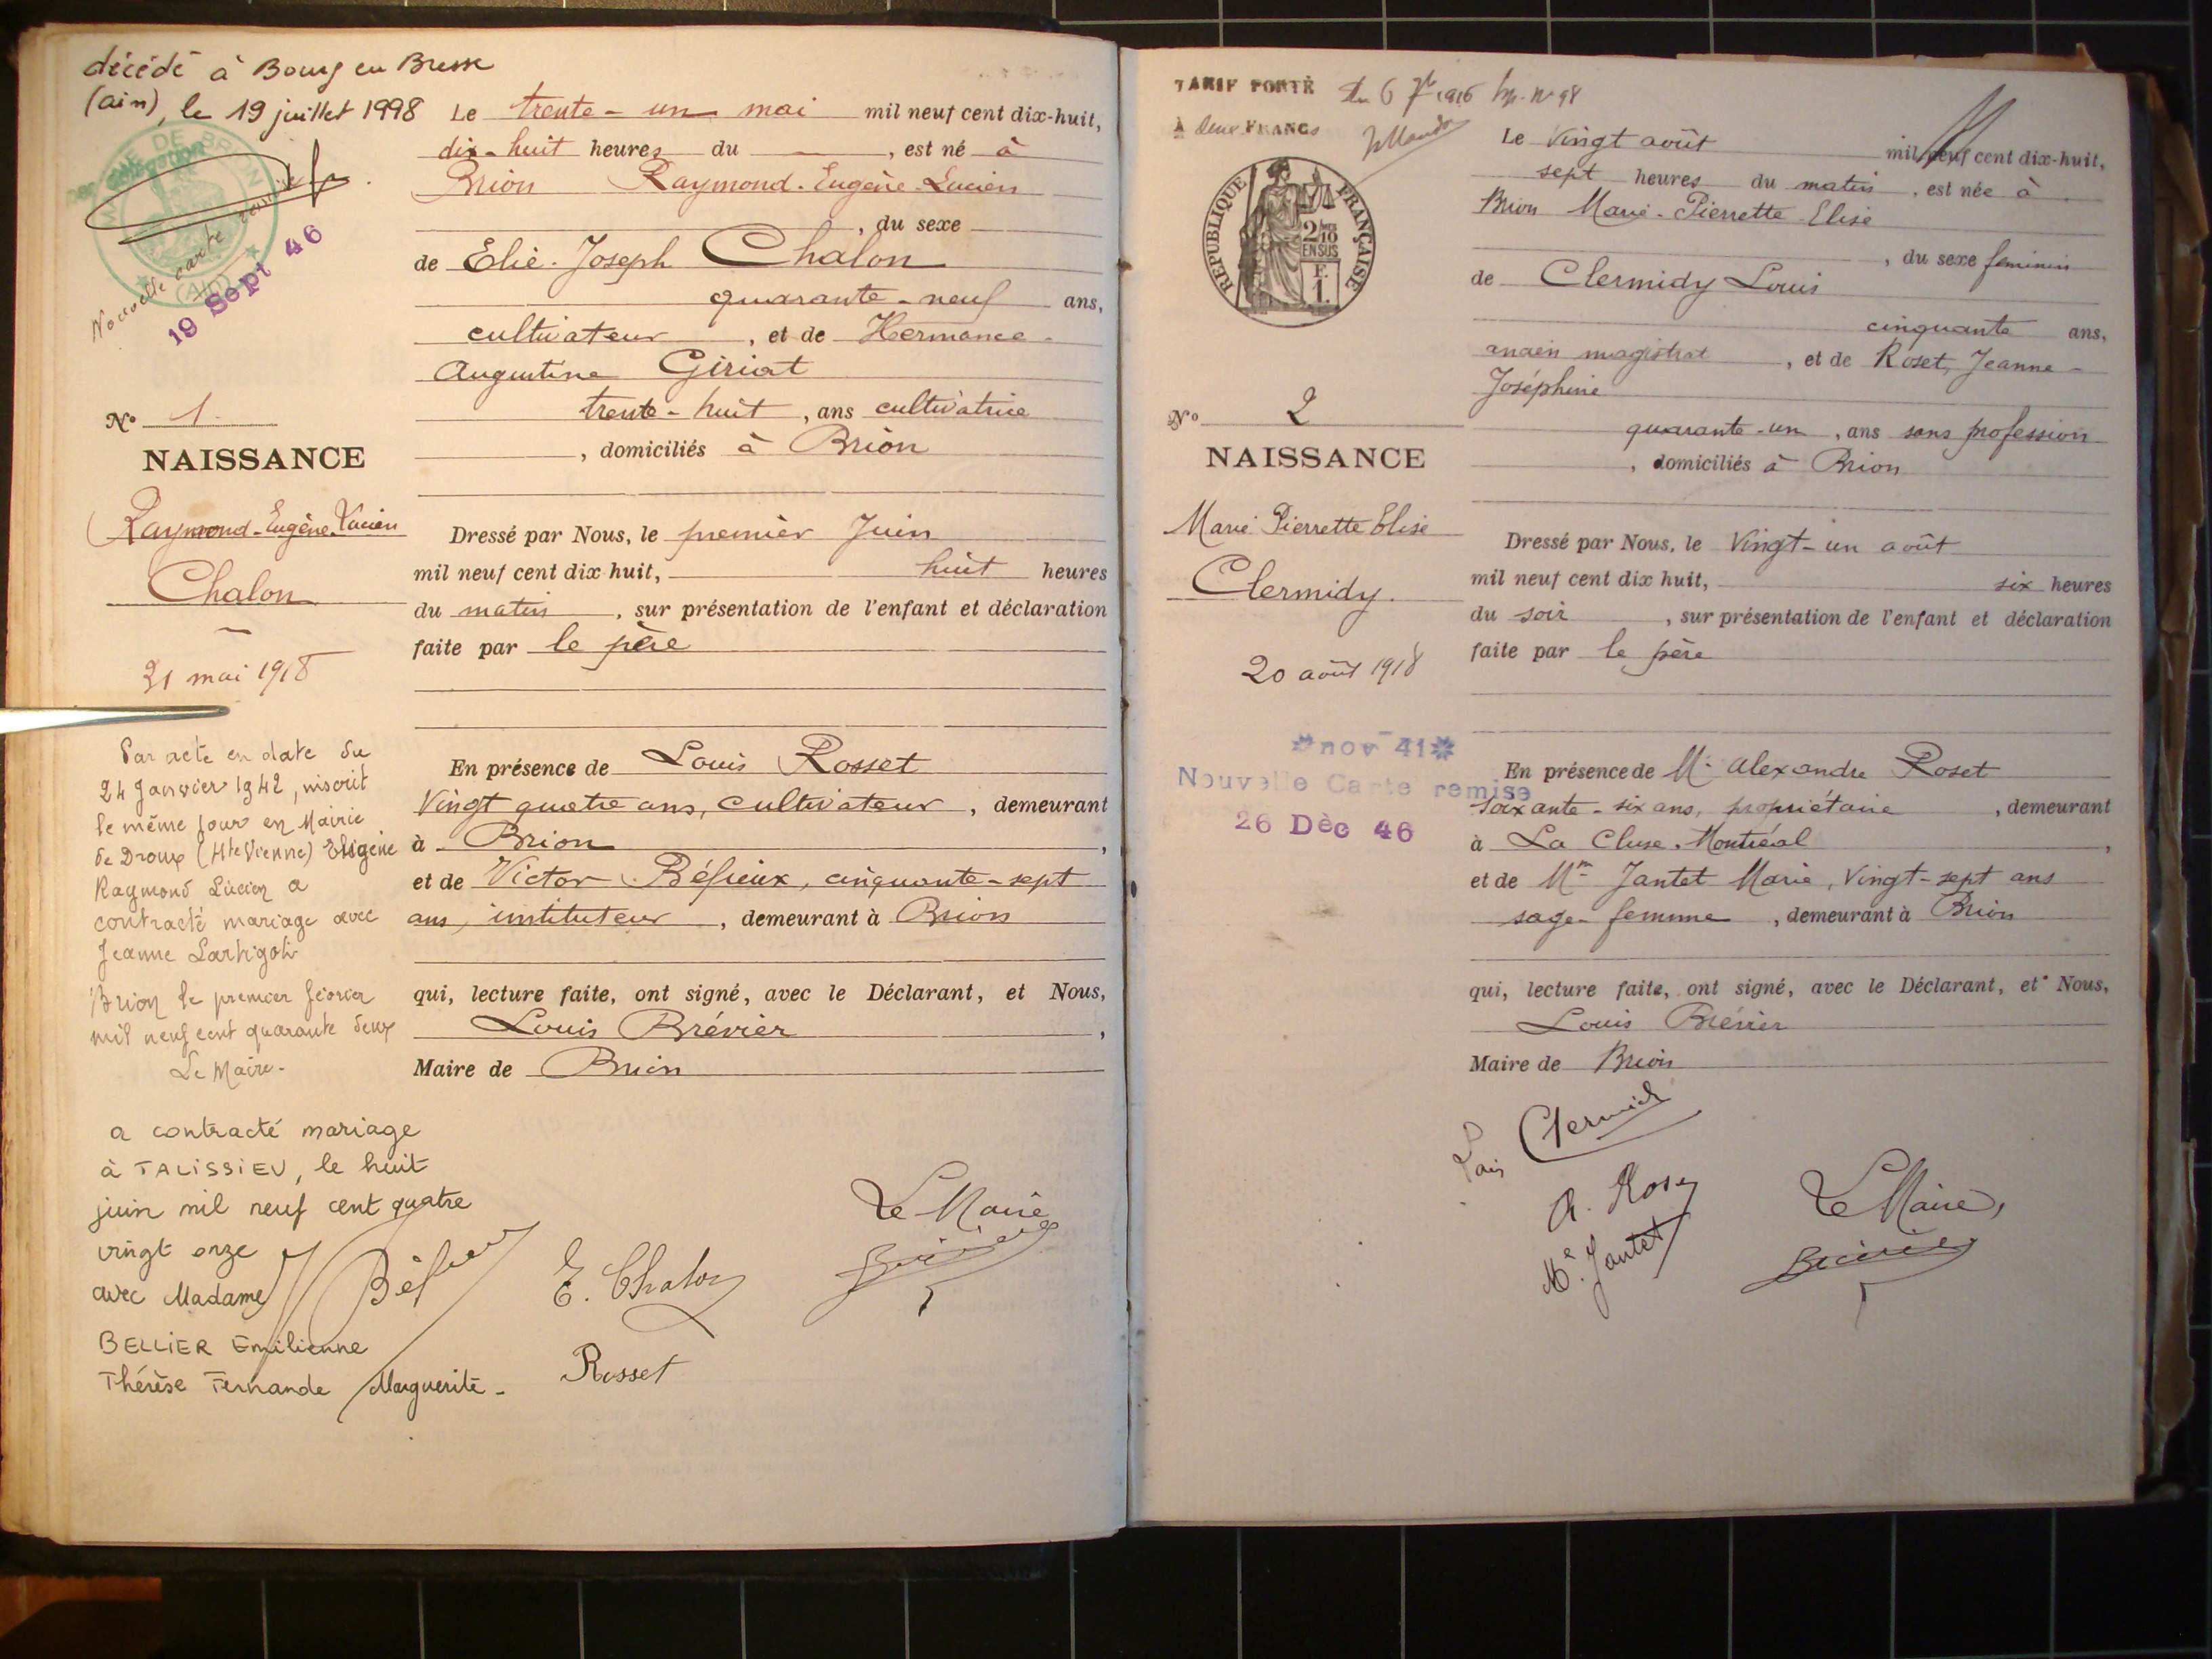 décédé à Bourg en Bresse
(ain), le 19 juillet 1998
MAIRIE DE BRION
(AIN)
Nouvelle carte remise
19 Sept 46
Le trente-un mai mil neuf cent dix-huit,
dix-huit heures du , est né à
Brion Raymond-Eugène-Lucien
, du sexe
de Elie-Joseph Chalon
quarante-neuf ans,
cultivateur , et de Hermance-
Augustine Giriat
trente-huit , ans cultivatrice
, domiciliés à Brion
No 1
NAISSANCE
Raymond-Eugène-Lucien
Chalon
31 mai 1918
Dressé par Nous, le premier Juin
mil neuf cent dix huit, huit heures
du matin , sur présentation de l'enfant et déclaration
faite par le père
Par acte en date du
24 Janvier 1942, inscrit
le même jour en Mairie
de Droux (Hte Vienne) Eugène
Raymond Lucien a
contracté mariage avec
Jeanne
Brion le premier février
mil neuf cent quarante deux
Le Maire-
En présence de Louis Rosset
Vingt quatre ans, cultivateur , demeurant
à Brion ,
et de Victor , cinquante-sept
ans, instituteur , demeurant à Brion
qui, lecture faite, ont signé, avec le Déclarant, et Nous,
Louis Brévier ,
Maire de Brion
a contracté mariage
à TALISSIEU, le huit
juin mil neuf cent quatre
vingt onze
avec Madame
BELLIER Emilienne
Thérèse Fernande Marguerite-
Le Maire
E. Chalon
Rosset
TARIF PORTÉ
À deux FRANCS
RÉPUBLIQUE FRANÇAISE
2/10
EN SUS
F.
1.
Le Vingt août mil neuf cent dix-huit,
sept heures du matin , est née à
Brion Marie-Pierrette-Elise
, du sexe feminin
de Clermidy Louis
cinquante ans,
ancien magistrat , et de Roset, Jeanne-
Joséphine
quarante-un , ans sans profession
, domiciliés à Brion
No 2
NAISSANCE
Marie Pierrette Elise
Clermidy.
20 août 1918
Dressé par Nous, le Vingt-un août
mil neuf cent dix huit, six heures
du soir , sur présentation de l'enfant et déclaration
faite par le père
nov 41
Nouvelle Carte remise
26 Déc 46
En présence de Mr Alexandre Roset
soixante-six ans, propriétaire , demeurant
à La Cluse. Montréal ,
et de Mme Jantet Marie, Vingt-sept ans
sage-femme , demeurant à Brion
qui, lecture faite, ont signé, avec le Déclarant, et Nous,
Louis Brévier
Maire de Brion
Clermidy
A. Roset
Me. Jantet
Le Maire,